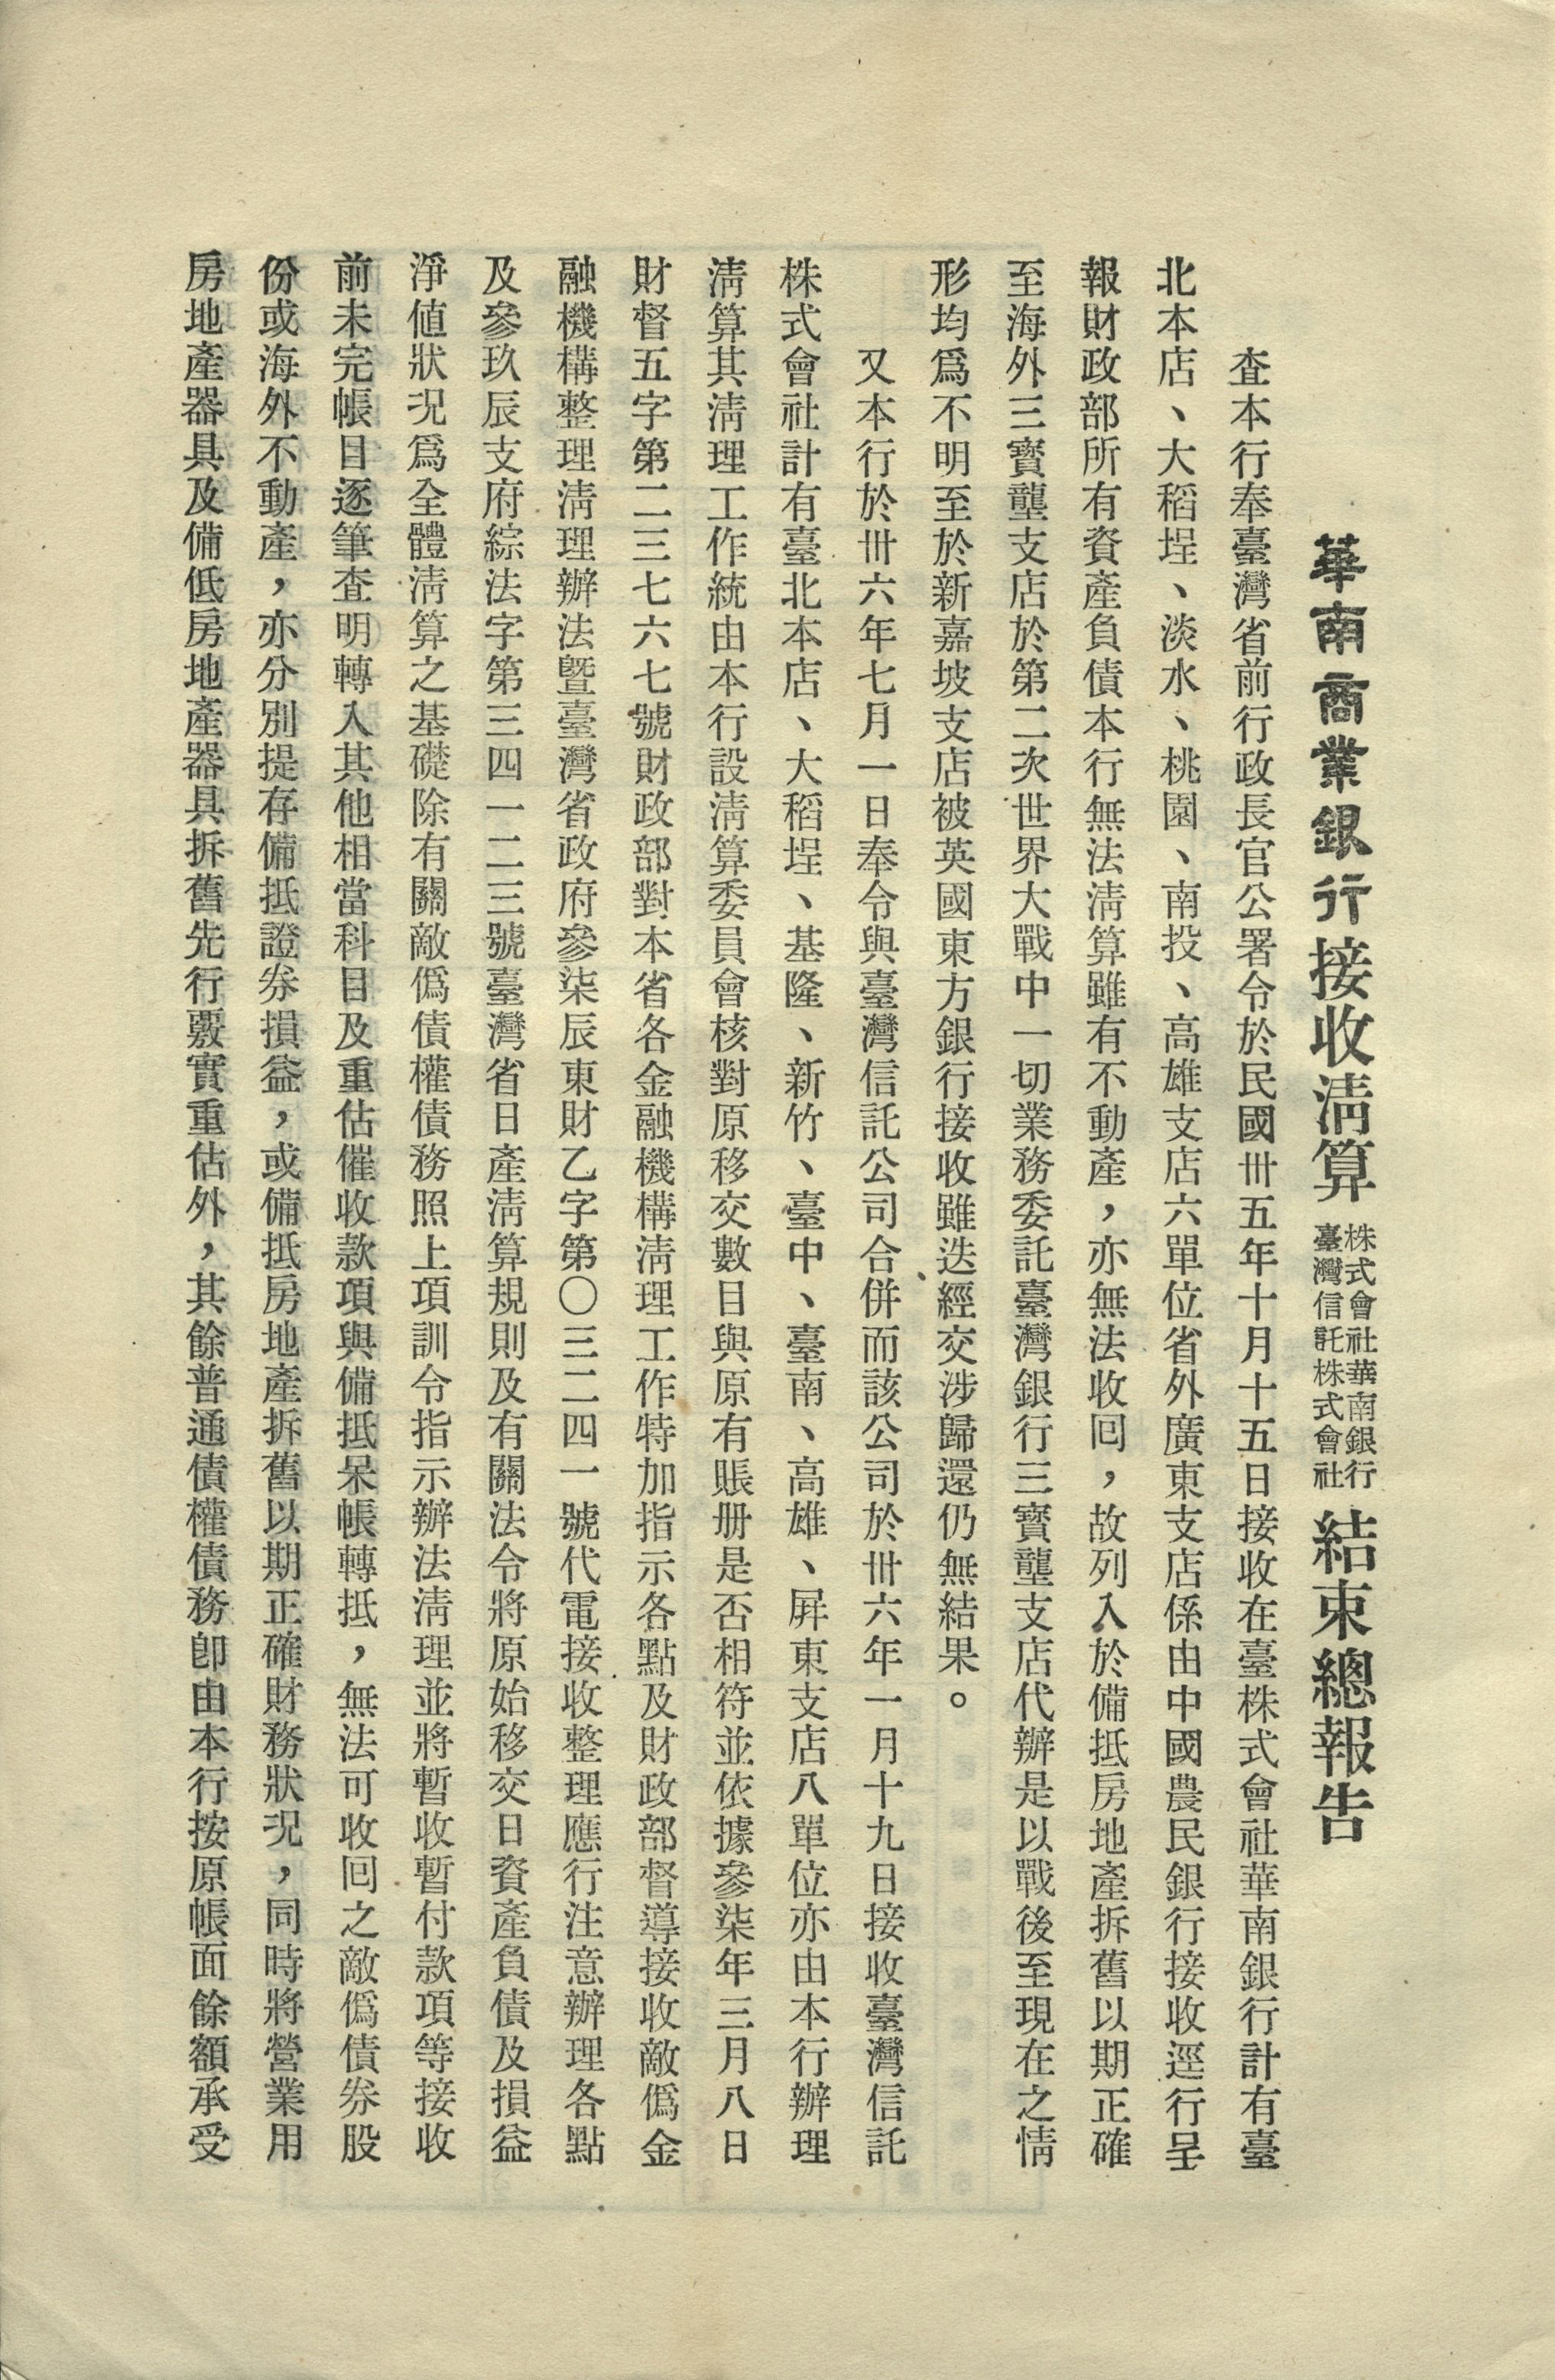 華南商業銀行接收淸算株式會社華南銀行臺灣信託株式會社結束總報告
查本行奉臺灣省前行政長官公署令於民國卅五年十月十五日接收在臺株式會社華南銀行計有臺
北本店、大稻埕、淡水、桃園、南投、高雄支店六單位省外廣東支店係由中國農民銀行接收逕行呈
報財政部所有資產負債本行無法淸算雖有不動產，亦無法收回，故列入於備抵房地產拆舊以期正確
至海外三寳壟支店於第二次世界大戰中一切業務委託臺灣銀行三寳壟支店代辦是以戰後至現在之情
形均爲不明至於新嘉坡支店被英國東方銀行接收雖迭經交涉歸還仍無結果。
又本行於卅六年七月一日奉令與臺灣信託公司合併而該公司於卅六年一月十九日接收臺灣信託
株式會社計有臺北本店、大稻埕、基隆、新竹、臺中、臺南、高雄、屛東支店八單位亦由本行辦理
淸算其淸理工作統由本行設淸算委員會核對原移交數目與原有賬册是否相符並依據參柒年三月八日
財督五字第二三七六七號財政部對本省各金融機構淸理工作特加指示各點及財政部督導接收敵僞金
融機構整理淸理辦法曁臺灣省政府參柒辰東財乙字第〇三二四一號代電接收整理應行注意辦理各點
及參玖辰支府綜法字第三四一二三號臺灣省日產淸算規則及有關法令將原始移交日資產負債及損益
淨値狀況爲全體淸算之基礎除有關敵僞債權債務照上項訓令指示辦法淸理並將暫收暫付款項等接收
前未完帳目逐筆查明轉入其他相當科目及重估催收款項與備抵呆帳轉抵，無法可收回之敵僞債券股
份或海外不動產，亦分別提存備抵證券損益，或備抵房地產拆舊以期正確財務狀況，同時將營業用
房地產器具及備低房地產器具拆舊先行覈實重估外，其餘普通債權債務卽由本行按原帳面餘額承受